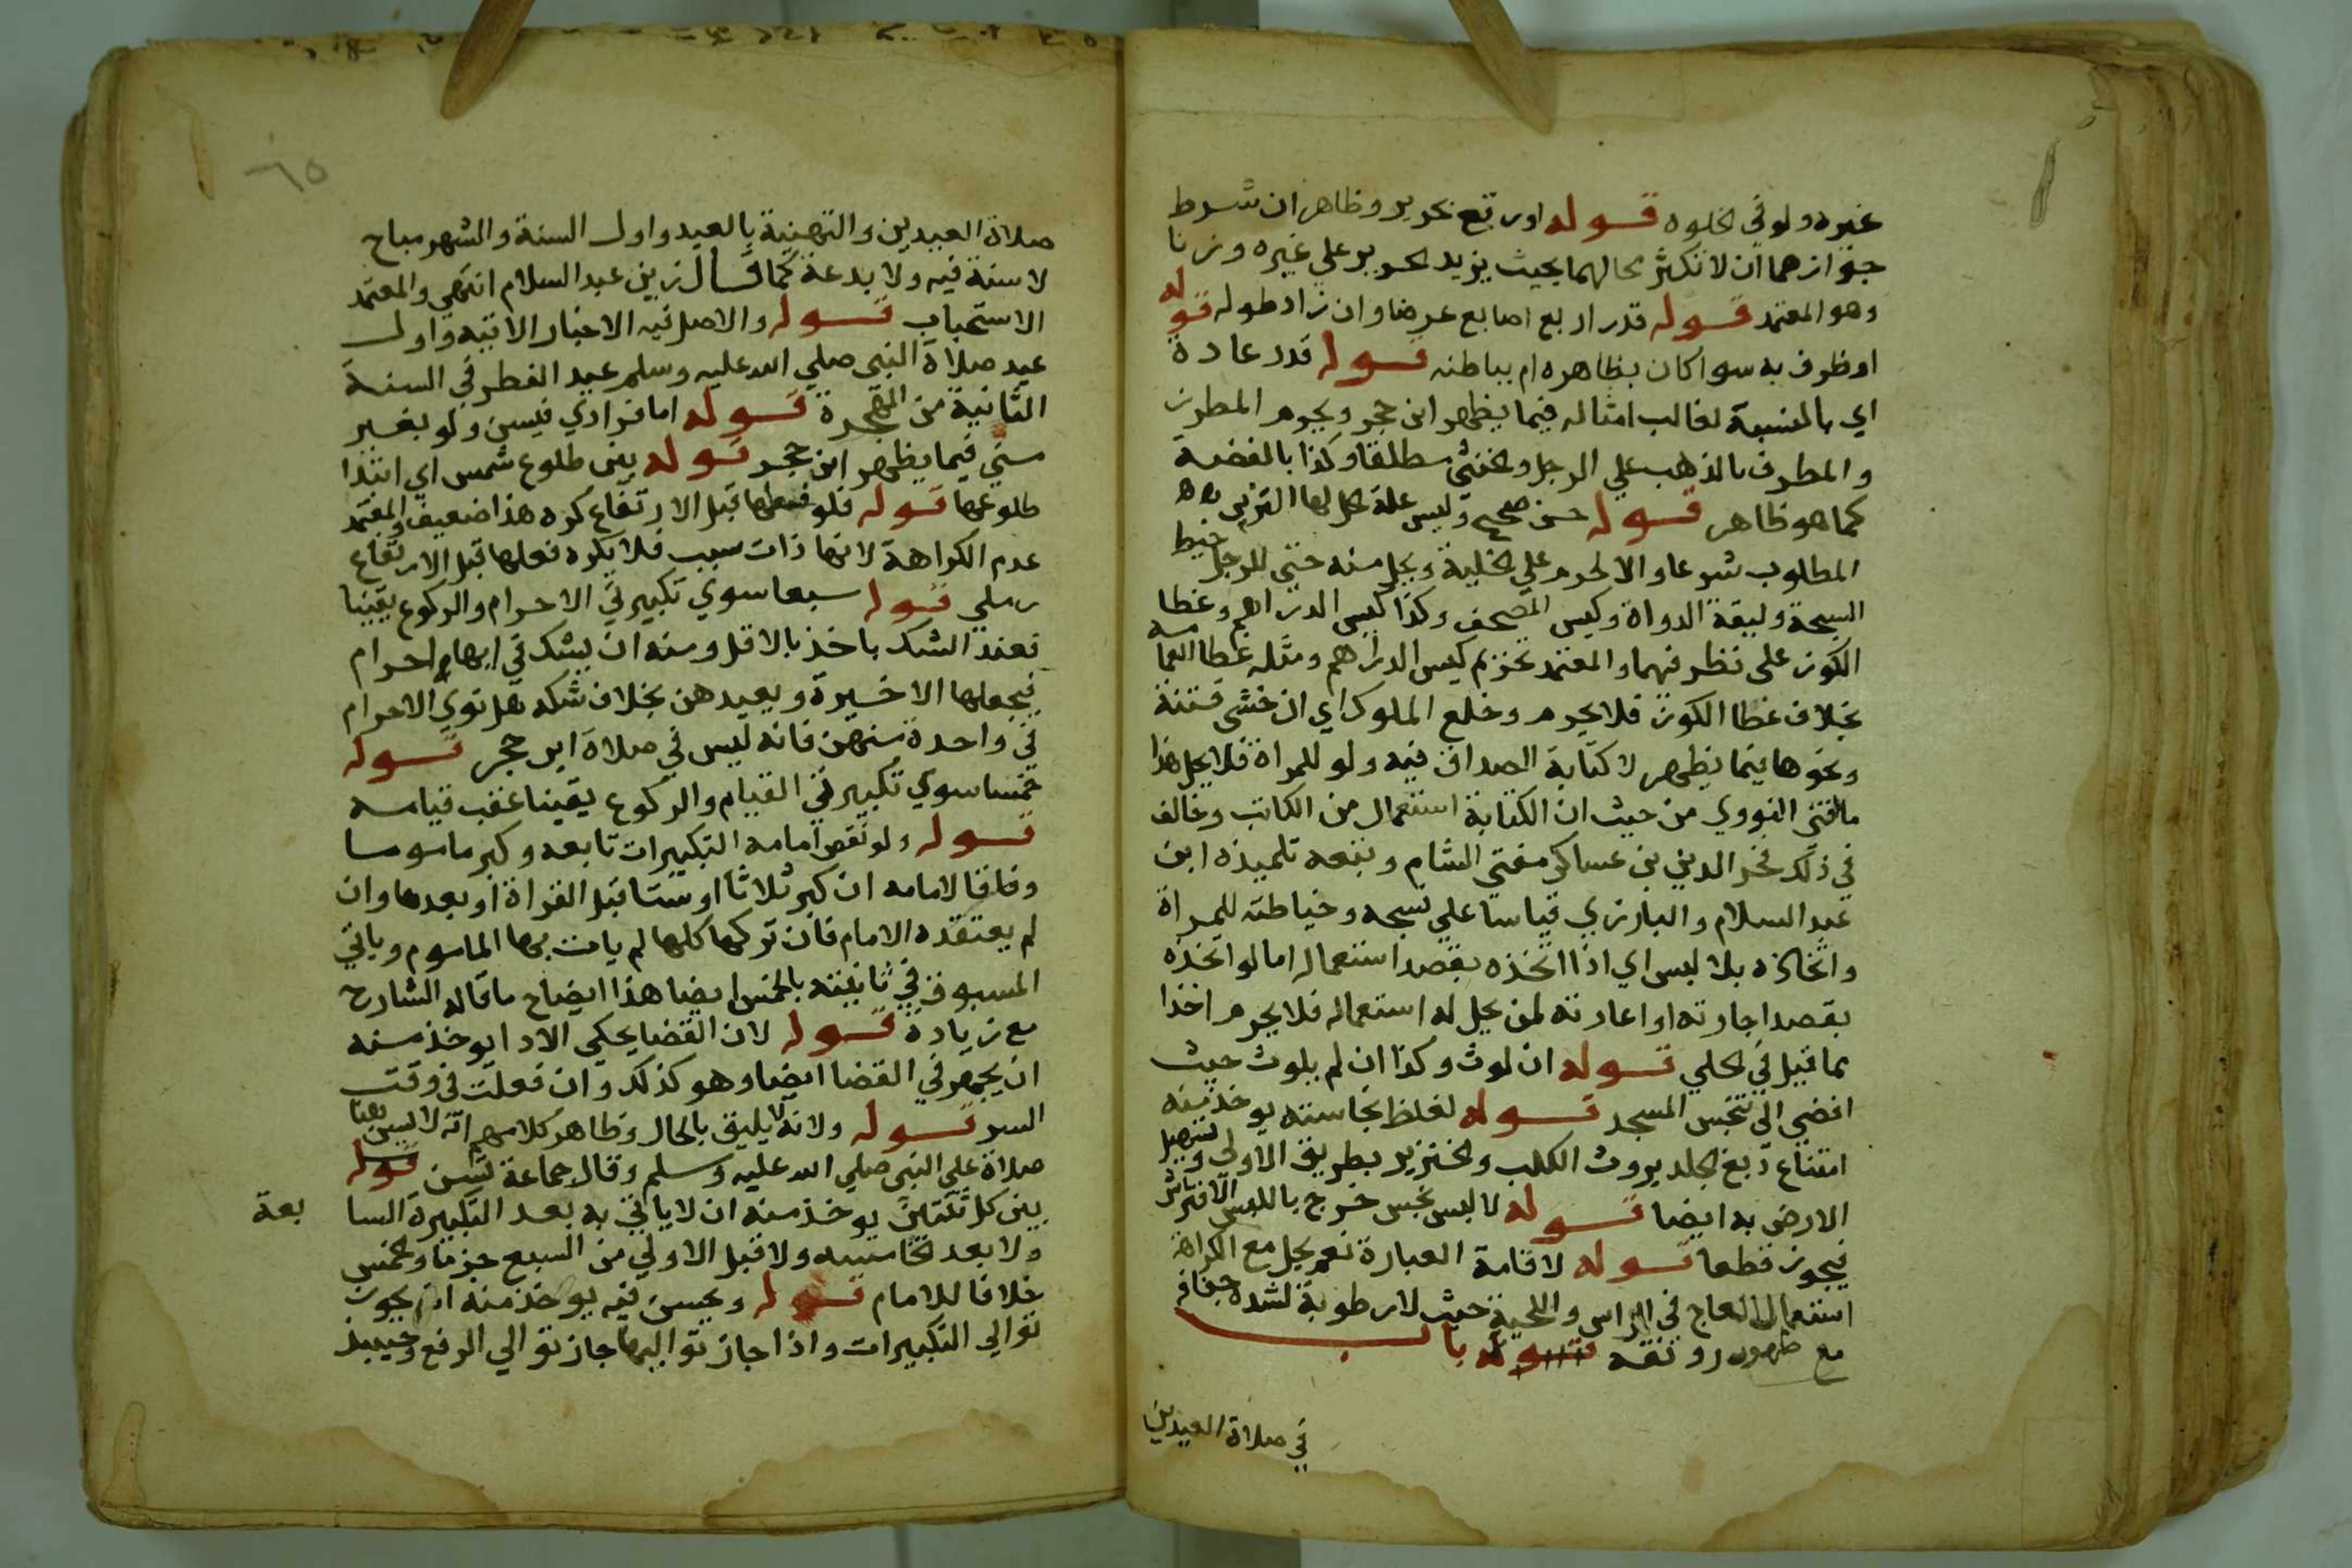 غيره ولو في الخلوه قوله اورقع بحرير وظاهر ان شرط
جوازهما ان لا تكثر محالهما بحيث يزيد الحرير علي غيره وزنا
وهو المعتمد قوله قدر اربع اصابع عرضا وان زاد طوله قوله
اوظرف به سوا كان بظاهره ام بباطنه قوله قدر عادة
اي بالنسبة لغالب امثاله فيما يظهر ابن حجر ويحرم المطرز
والمطرف بالذهب علي الرجل والخنثي مطلقا وكذا بالفضة
كما هو ظاهر قوله حسن صحيح وليس علة حل لها التزين به
المطلوب شرعا والا لحرم علي الخلية ويحل منه حتي للرجل خيط
السبحة وليقة الدواة وكيس المصحف وكذا كيس الدراهم وغطا
الكوز على نظر فيهما والمعتمد تحريم كيس الدراهم ومثله غطا العمامة
بخلاف غطا الكوز فلا يحرم وخلع الملوك اي ان خشي فتنة
ونحوها فيما يظهر لا كتابة الصداق فيه ولو للمراة فلا يحل هذا
ما افتي النووي من حيث ان الكتابة استعمال من الكاتب وخالف
في ذلك فخر الدين بن عساكر مفتي الشام وتبعه تلميذه ابن
عبد السلام والبارزي قياسا علي نسجه وخياطته للمراة
واتخاذه بلا لبس اي اذا اتخذه بقصد استعماله اما لو اتخذه
بقصد اجارته او اعارته لمن يحل له استعماله فلا يحرم اخذا
بما قيل في الحلي قوله ان لوث وكذا ان لم يلوث حيث
افضي الي تنجس المسجد قوله لغلظ نجاسته يوخذ منه
امتناع دبغ الجلد بروث الكلب والخنزير بطريق الاولي وتسهيل
الارض به ايضا قوله لا لبس نجس خرج باللبس الافتراش
فيجوز قطعا قوله لاقامة العبارة نعم يحل مع الكراهة
استعمال العاج في الراس واللحية حيث لا رطوبة لشدة جفافه
مع ظهور رونقه قوله باب
في صلاة العيدين
٦٥
صلاة العيدين والتهنية بالعيد واول السنة والشهر مباح
لا سنة فيه ولا بدعة كما قال زين عبد السلام انتهي والمعتمد
الاستحباب قوله والاصل فيه الاخبار الاتيه واول
عيد صلاة النبي صلي الله عليه وسلم عيد الفطر في السنة
الثانية من الهجرة قوله اما فرادي فيسن ولو بغير
مني فيما يظهر ابن حجر قوله بين طلوع شمس اي ابتدا
طلوعها قوله فلو فعلها قبل الارتفاع كره هذا ضعيف والمعتمد
عدم الكراهة لانها ذات سبب فلا يكره فعلها قبل الارتفاع
رملي قوله سبعا سوي تكبيرتي الاحرام والركوع يقينا
فعند الشك ياخذ بالاقل ومنه ان يشك في ايها احرام
فيجعلها الاخيرة ويعيدهن بخلاف شكه هل نوي الاحرام
في واحدة منهن فانه ليس في صلاة ابن حجر قوله
خمسا سوي تكبيرتي القيام والركوع يقينا عقب قيامه
قوله ولو نقص امامه التكبيرات تابعه وكبر ماموما
وفاقا لامامه ان كبر ثلاثا او ستا قبل القراة او بعدها وان
لم يعتقده الامام فان تركها كلها لم يات بها الماموم وياتي
المسبوق في ثانيته بالخمس ايضا هذا ايضاح ما قاله الشارح
مع زيادة قوله لان القضا يحكي الادا يوخذ منه
ان يجهر في القضا ايضا وهو كذلك وان فعلت في وقت
السر قوله ولانه لا يليق بالحال وظاهر كلامهم انه لا يسن هنا
صلاة علي النبي صلي الله عليه وسلم وقال جماعة تسن قوله
بين كل ثنتين يوخذ منه ان لا ياتي به بعد التكبيرة السا
بعة
ولا بعد الخامسه ولا قبل الاولي من السبع جزما والخمس
خلافا للامام قوله ويحسن فيه يوخذ منه انه يجوز
توالي التكبيرات واذا جاز تواليها جاز توالي الرفع وحينيذ